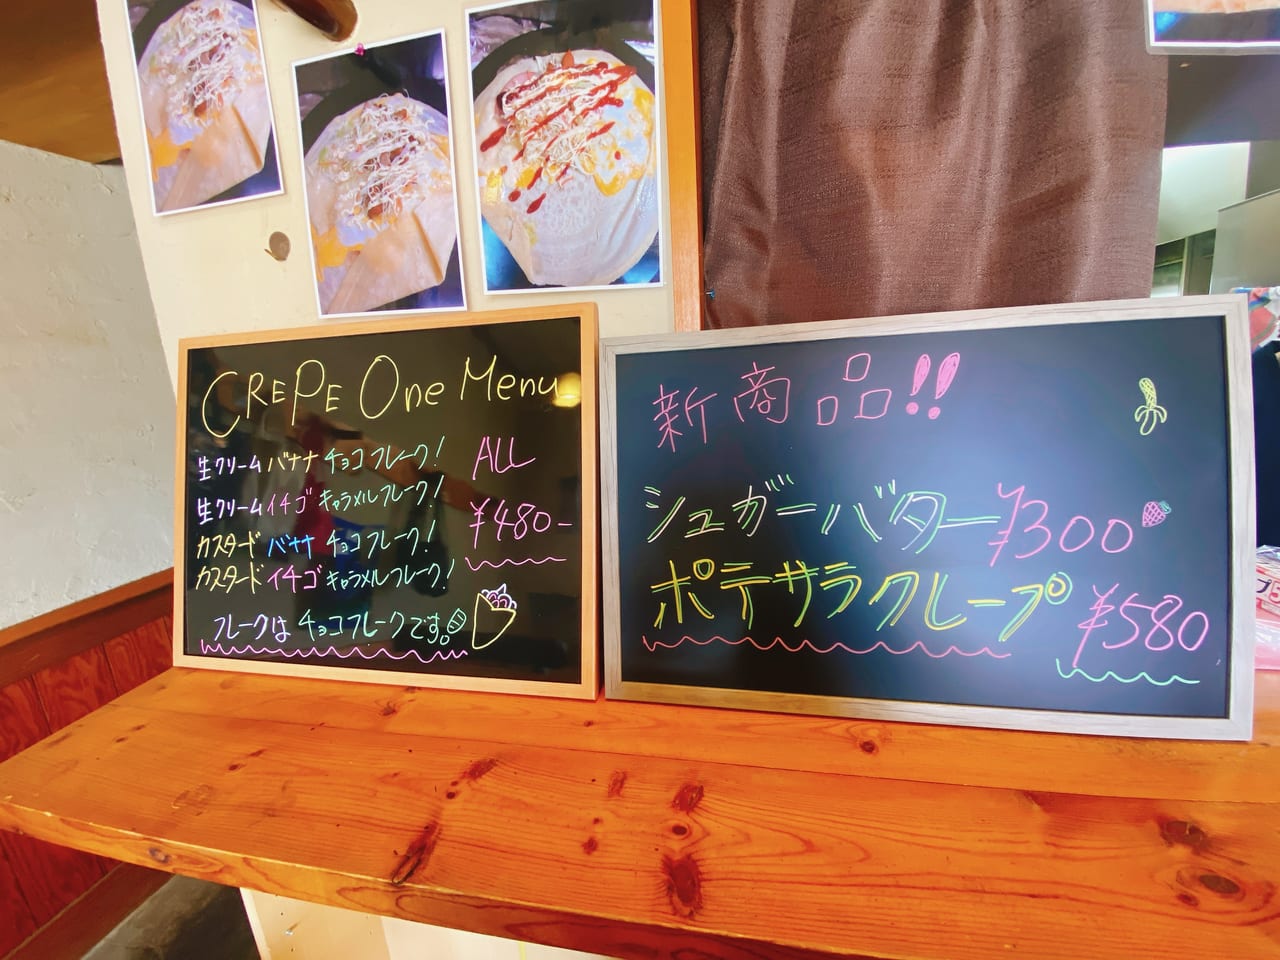 CREPE One Menu
生クリームバナナチョコフレーク!
生クリームイチゴキャラメルフレーク!
カスタードバナナチョコフレーク!
カスタードイチゴキャラメルフレーク!
フレークはチョコフレークです。
ALL
¥480-
新商品!!
シュガーバター¥300
ポテサラクレープ
¥580